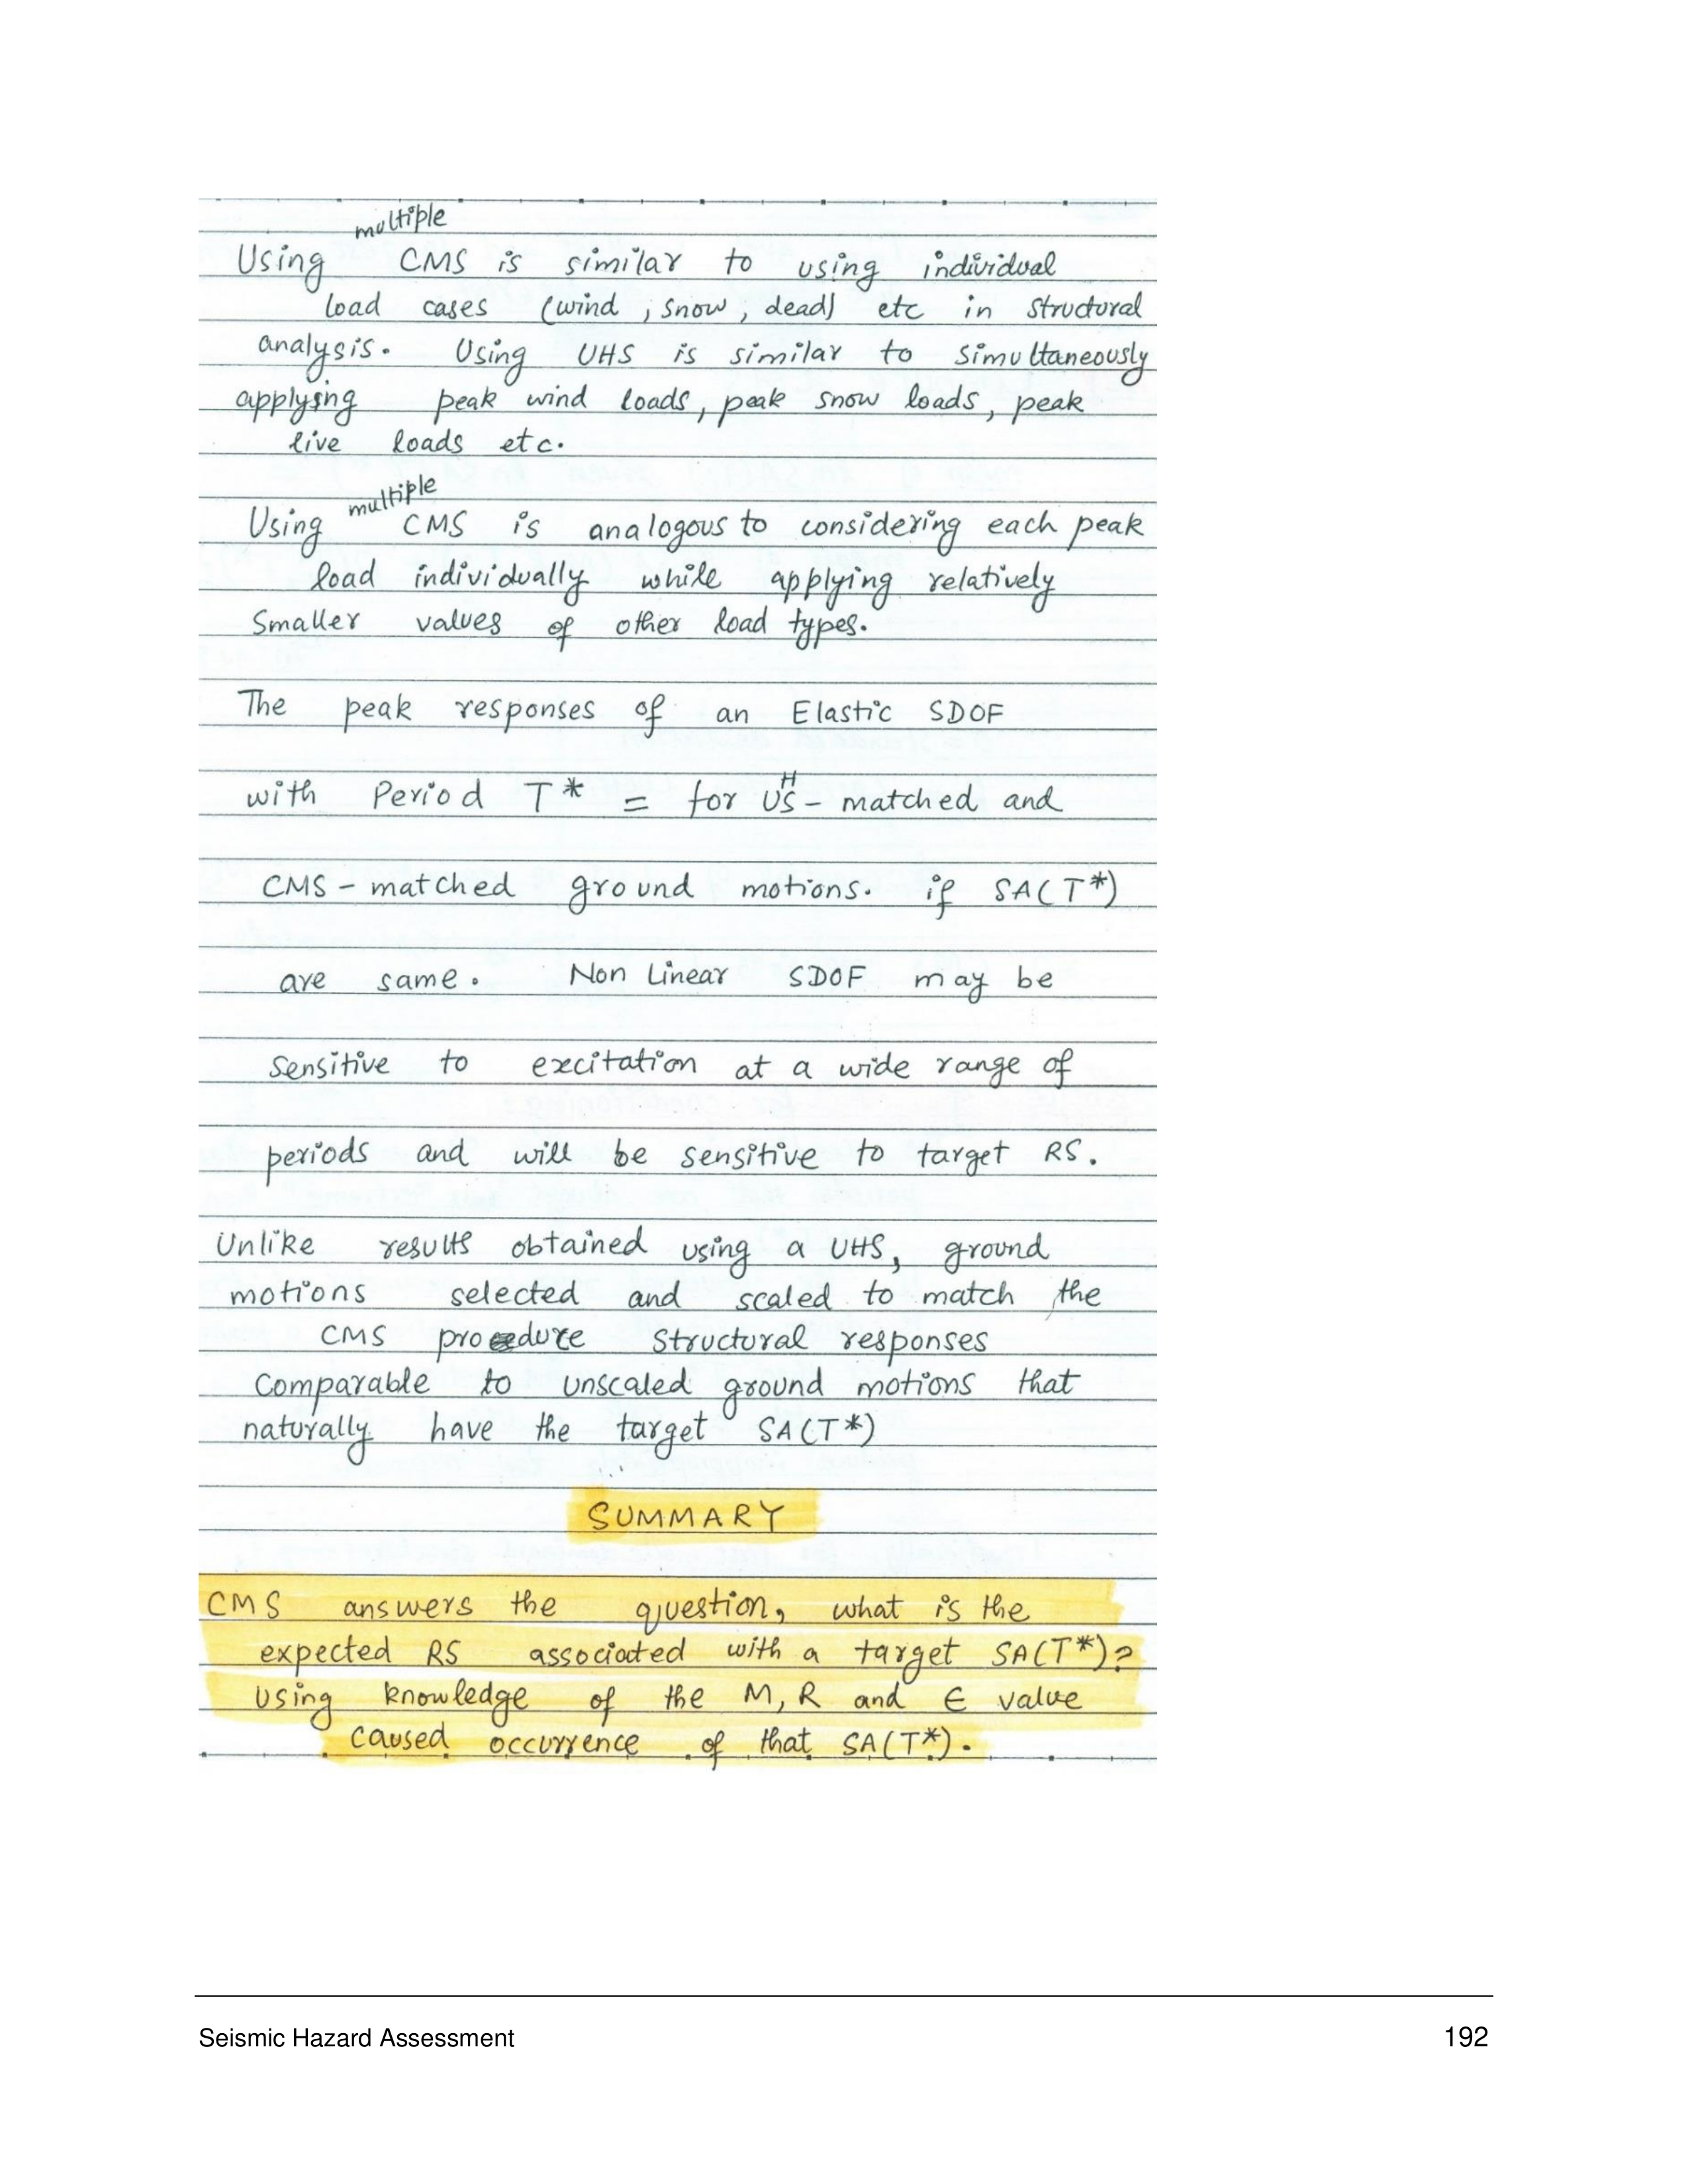 multiple
Using CMS is similar to using individual
load cases (wind, snow, dead) etc in structural
analysis. Using UHS is similar to simultaneously
applying peak wind loads, peak snow loads, peak
live loads etc.
multiple
Using CMS is analogous to considering each peak
load individually while applying relatively
smaller values of other load types.
The peak responses of an Elastic SDOF
with Period T* = for UHS - matched and
CMS - matched ground motions. if SA(T*)
are same. Non Linear SDOF may be
sensitive to excitation at a wide range of
periods and will be sensitive to target RS.
Unlike results obtained using a UHS, ground
motions selected and scaled to match the
CMS procedure structural responses
comparable to unscaled ground motions that
naturally have the target SA(T*)
SUMMARY
CMS answers the question, what is the
expected RS associated with a target SA(T*)?
Using knowledge of the M, R and ε value
caused occurrence of that SA(T*).
Seismic Hazard Assessment 192